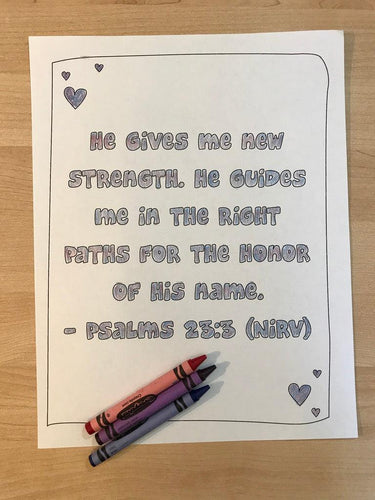 He gives me new
strength. He guides
me in the right
paths for the honor
of his name.
- Psalms 23:3 (NIRV)